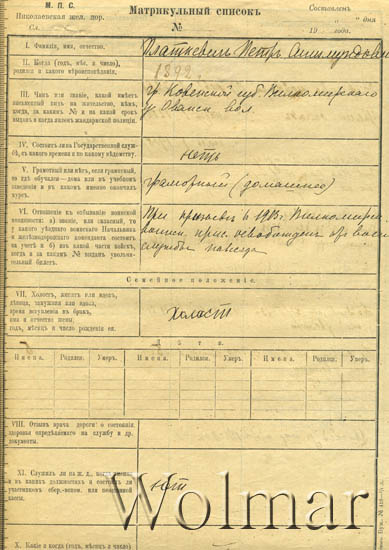 М. П. С.
Николаевская жел. дор.
Сл.
Матрикульный списокъ
№
Составленъ
" " дня
19 года.
I. Фамилія, имя, отчество.
Петръ
II. Когда (годъ, мѣс. и число),
родился и какого вѣроисповѣданія.
1892
III. Чинъ или званіе, какой имѣетъ
письменный видъ на жительство, кѣмъ,
когда, за какимъ № и на какой срокъ
выданъ и когда явленъ жандармской полиціи.
гр. Ковенской губ. Вилкомирскаго
у. Ованск. вол.
IV. Состоитъ ли на Государственной служ-
бѣ, съ какого времени и по какому вѣдомству.
нѣтъ
V. Грамотный или нѣтъ, если грамотный,
то гдѣ обучался—дома или въ учебномъ
заведеніи и въ какомъ именно окончилъ
курсъ.
грамотный (домашнее)
VI. Отношеніе къ отбыванію воинской
повинности: а) званіе, или запасный, то
у какого уѣзднаго воинскаго Начальника
и желѣзнодорожнаго коменданта состоитъ
на учетѣ и б) изъ какой части войскъ,
когда и за какимъ № выданъ уволь-
нительный билетъ.
При призывѣ въ 1913 г. Вилкомир.
воинск. прис. освобожденъ от воен.
службы навсегда
Семейное положеніе.
VII. Холостъ, женатъ или вдовъ,
дѣвица, замужняя или вдова,
время вступленія въ бракъ,
имя и отчество жены,
годъ, мѣсяцъ и число рожденія ея.
Холостъ
Дѣти.
Имена. Родился. Умеръ. Имена. Родился. Умеръ. Имена. Родился. Умеръ.
VIII. Отзывъ врача дороги о состояніи
здоровья опредѣляемаго на службу и др.
документы.
XI. Служилъ ли на ж. д., когда именно
и въ какихъ должностяхъ и состоялъ ли
участникомъ сбер.-вспом. или пенсіонной
кассы.
нѣт
Wolmar
X. Какіе и когда (годъ, мѣсяцъ и число)